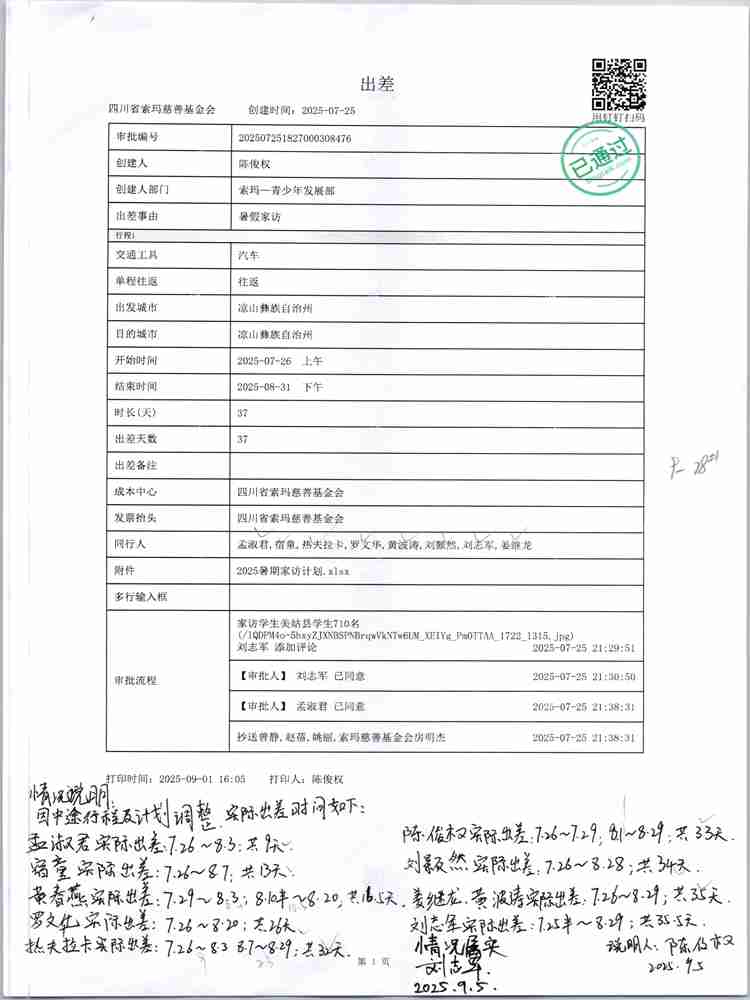 出差
四川省索玛慈善基金会 创建时间：2025-07-25
用钉钉扫码
已通过
审批编号 202507251827000308476
创建人 陈俊权
创建人部门 索玛—青少年发展部
出差事由 暑假家访
行程1
交通工具 汽车
单程往返 往返
出发城市 凉山彝族自治州
目的城市 凉山彝族自治州
开始时间 2025-07-26 上午
结束时间 2025-08-31 下午
时长(天) 37
出差天数 37
出差备注
成本中心 四川省索玛慈善基金会
发票抬头 四川省索玛慈善基金会
同行人 孟淑君,宿童,热夫拉卡,罗文华,黄波涛,刘颢然,刘志军,姜继龙
附件 2025暑期家访计划.xlsx
多行输入框
审批流程
家访学生美姑县学生710名
(/lQDPM4o-5hxyZJXNBSPNBrqwVkNTw6UM_XEIYg_PmOTTAA_1722_1315.jpg)
刘志军 添加评论 2025-07-25 21:29:51
【审批人】 刘志军 已同意 2025-07-25 21:30:50
【审批人】 孟淑君 已同意 2025-07-25 21:38:31
抄送曾静,赵蓓,姚丽,索玛慈善基金会房明杰 2025-07-25 21:38:31
打印时间：2025-09-01 16:05 打印人：陈俊权
情况说明：
因中途行程及计划调整，实际出差时间如下：
孟淑君实际出差：7.26～8.3；共9天、
宿童实际出差：7.26～8.7；共13天、
黄春燕实际出差：7.29～8.3，8.10半～8.20，共16.5天、
罗文华实际出差：7.26～8.20；共26天、
热夫拉卡实际出差：7.26～8.3 8.7～8.29；共32天、
陈俊权实际出差：7.26～7.29，8.1～8.29，共33天、
刘颢然实际出差：7.26～8.28；共34天、
姜继龙、黄波涛实际出差：7.26～8.29，共35天、
刘志军实际出差：7.25半～8.29；共35.5天、
情况属实
刘志军
2025.9.5.
说明人：陈俊权
2025.9.5
第 1 页